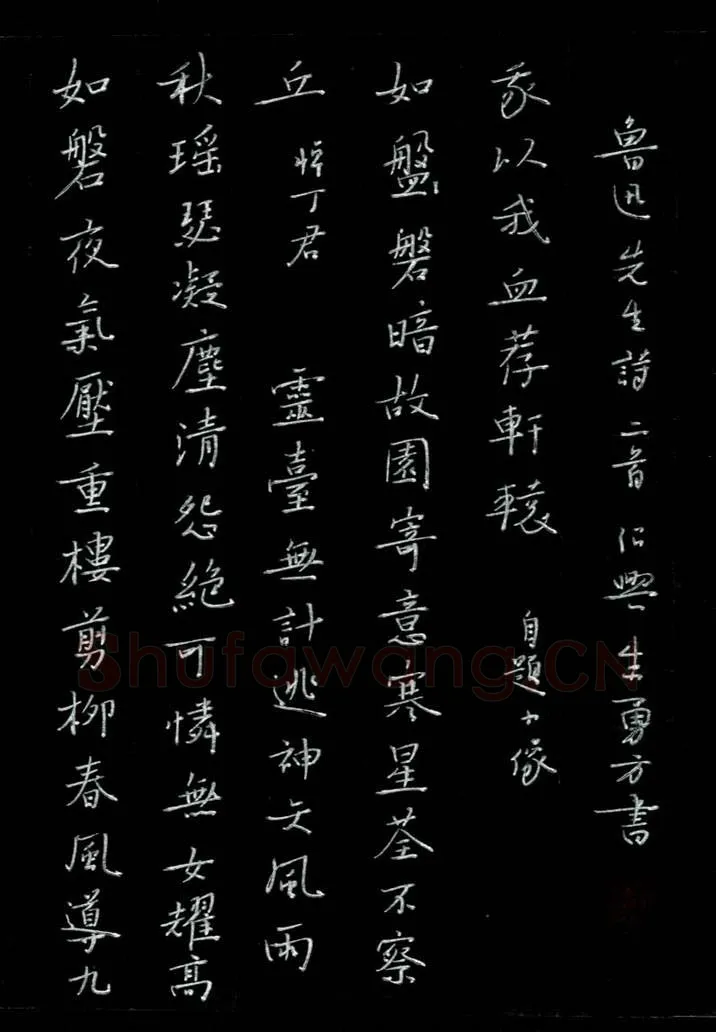 如磐夜氣壓重樓剪柳春風導九
秋瑤瑟凝塵清怨絕可憐無女耀高
丘 悼丁君 靈臺無計逃神矢風雨
如盤磐暗故園寄意寒星荃不察
我以我血荐軒轅 自題小像
魯迅先生詩二首 紹興朱勇方書
Shufawang.CN